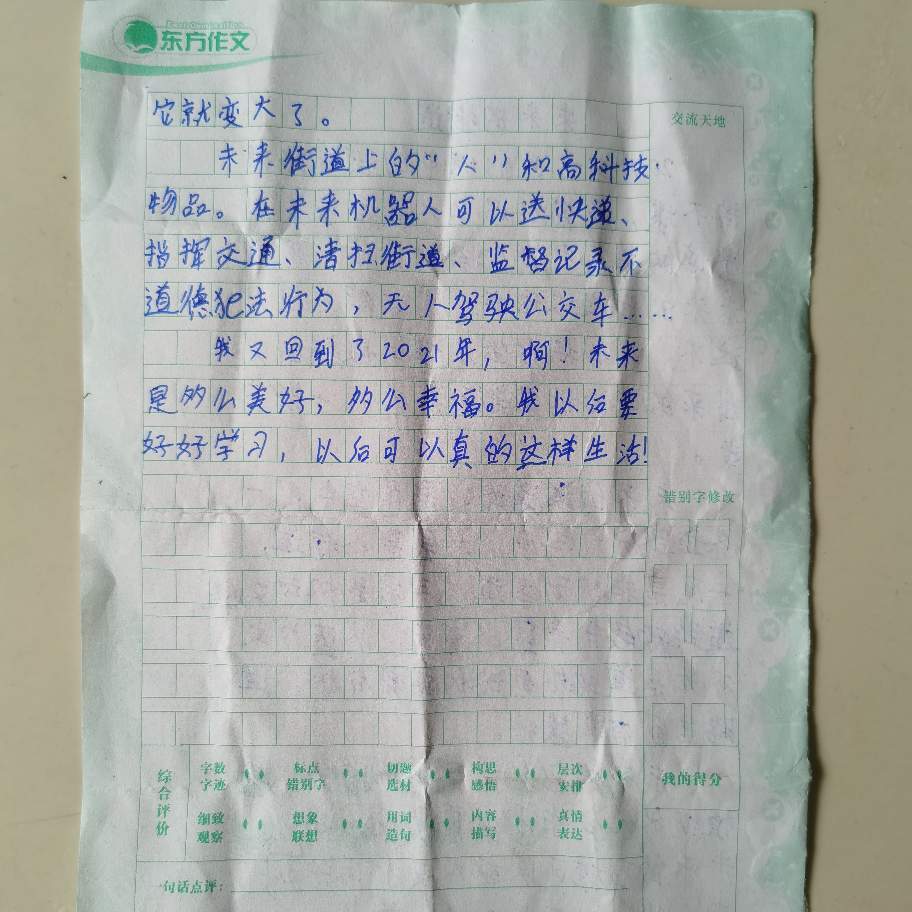 东方作文
它就变大了。
交流天地
未来街道上的“人”和高科技
物品。在未来机器人可以送快递、
指挥交通、清扫街道、监督记录不
道德犯法行为，无人驾驶公交车……
我又回到了2021年，啊！未来
是多么美好，多么幸福。我以后要
好好学习，以后可以真的这样生活！
错别字修改
综合评价
字数 标点 切题 构思 层次
字迹 错别字 选材 感悟 安排
我的得分
细致 想象 用词 内容 真情
观察 联想 造句 描写 表达
一句话点评：